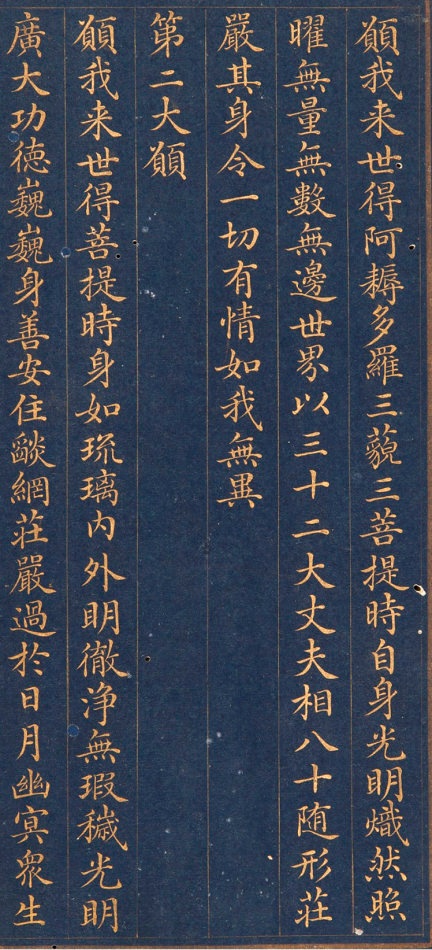 願我来世得阿耨多羅三藐三菩提時自身光明熾然照
曜無量無數無邊世界以三十二大丈夫相八十随形莊
嚴其身令一切有情如我無異
第二大願
願我来世得菩提時身如琉璃内外明徹浄無瑕穢光明
廣大功德巍巍身善安住燄網莊嚴過於日月幽冥衆生